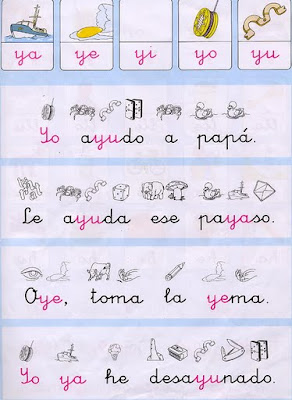 ya ye yi yo yu
Yo ayudo a papá.
Le ayuda ese payaso.
Oye, toma la yema.
Yo ya he desayunado.